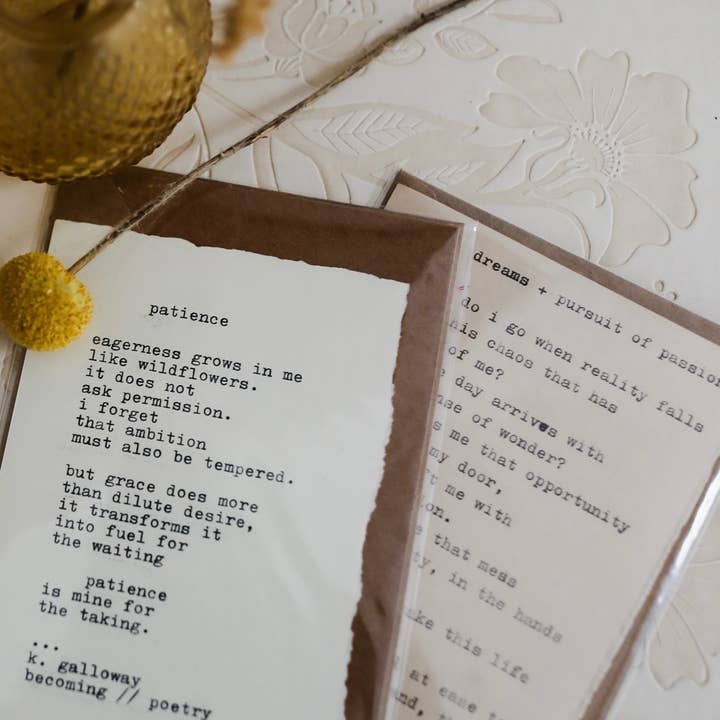 patience
eagerness grows in me
like wildflowers.
it does not
ask permission.
i forget
that ambition
must also be tempered.
but grace does more
than dilute desire,
it transforms it
into fuel for
the waiting
patience
is mine for
the taking.
...
k. galloway
becoming // poetry
dreams + pursuit of passion
do i go when reality falls
his chaos that has
of me?
day arrives with
nse of wonder?
s me that opportunity
my door,
ft me with
on.
that mess
ty, in the hands
ake this life
at ease
nd,